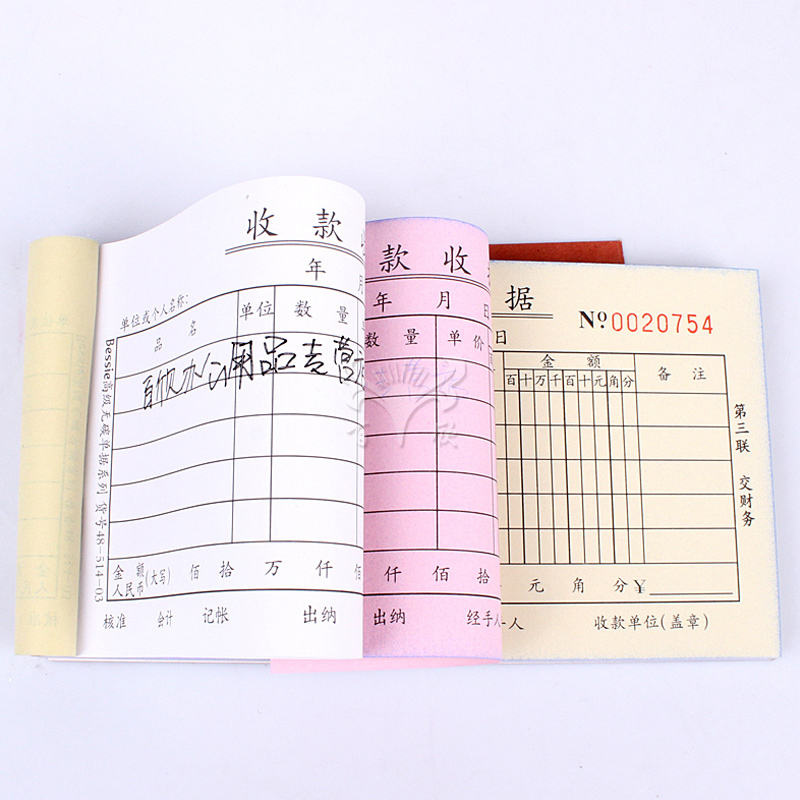 收 款
年 月
单位或个人名称:
品 名 单位 数 量
办公用品专营
Bessie高级无碳单据系列 货号48-514-03
金 额
人民币(大写) 佰 拾 万 仟 佰
核准 会计 记帐 出纳
款 收
年 月 日
数 量 单 价
仟 佰 拾
出纳 经手人
据
日 Nº 0020754
金 额 备 注
百十万千百十元角分
第三联 交财务
元 角 分 ¥
人 收款单位(盖章)